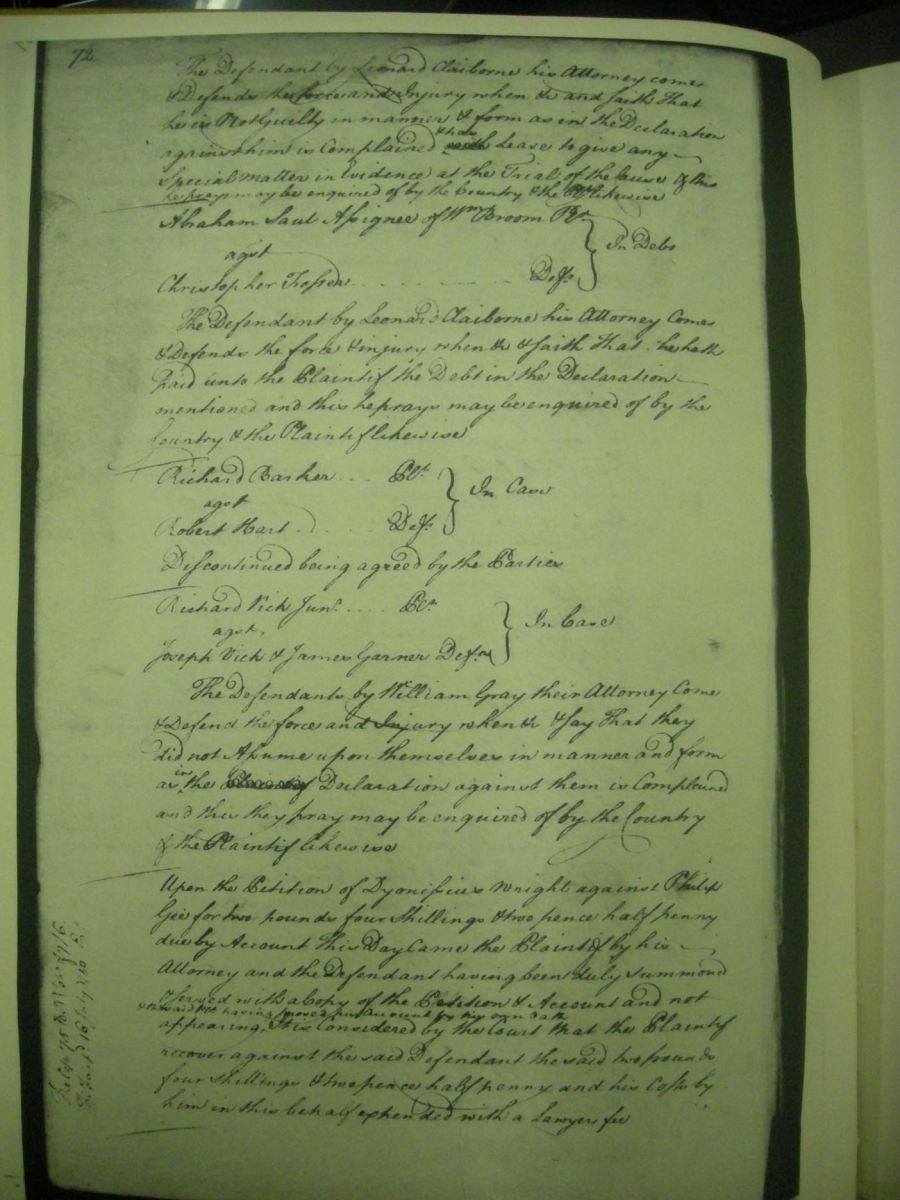 72.
The Defendant by Leonard Claiborne his Attorney comes
& Defends the force and Injury when &c and saith That
he is Not Guilty in manner & form as in the Declaration
against him is Complained & has Leave to give any
Special matter in Evidence at the Trial of the Cause & this
he prays may be enquired of by the Country & the Plt likewise
Abraham Saul Assignee of Wm Broom Plt
In Debt
agst
Christopher Deft
The Defendant by Leonard Claiborne his Attorney Comes
& Defends the force & injury when &c & saith That he hath
paid unto the Plaintif the Debt in the Declaration
mentioned and this he prays may be enquired of by the
Country & the Plaintif likewise
Richard Barker Plt
In Case
agst
Robert Hart Deft
Discontinued being agreed by the Parties
Richard Vick Junr Plt
In Case
agst
Joseph Vick & James Garner Defts
The Defendants by William Gray their Attorney Come
& Defend the force and Injury when &c & say That they
did not Assume upon themselves in manner and form
as in the Declaration against them is Complained
and this they pray may be enquired of by the Country
& the Plaintif likewise
Upon the Petition of Dyonisius Wright against Philip
Gee for two pounds four Shillings & two pence half penny
due by Account This Day Came the Plaintif by his
Attorney and the Defendant having been duly Summond
& Served with a Copy of the Petition & Account and not
& the said Plt having proved his Account by his own Oath
appearing, It is Considered by the Court that the Plaintif
recover against the said Defendant the said two pounds
four shillings & two pence half penny and his Costs by
him in this behalf expended with a Lawyers fee